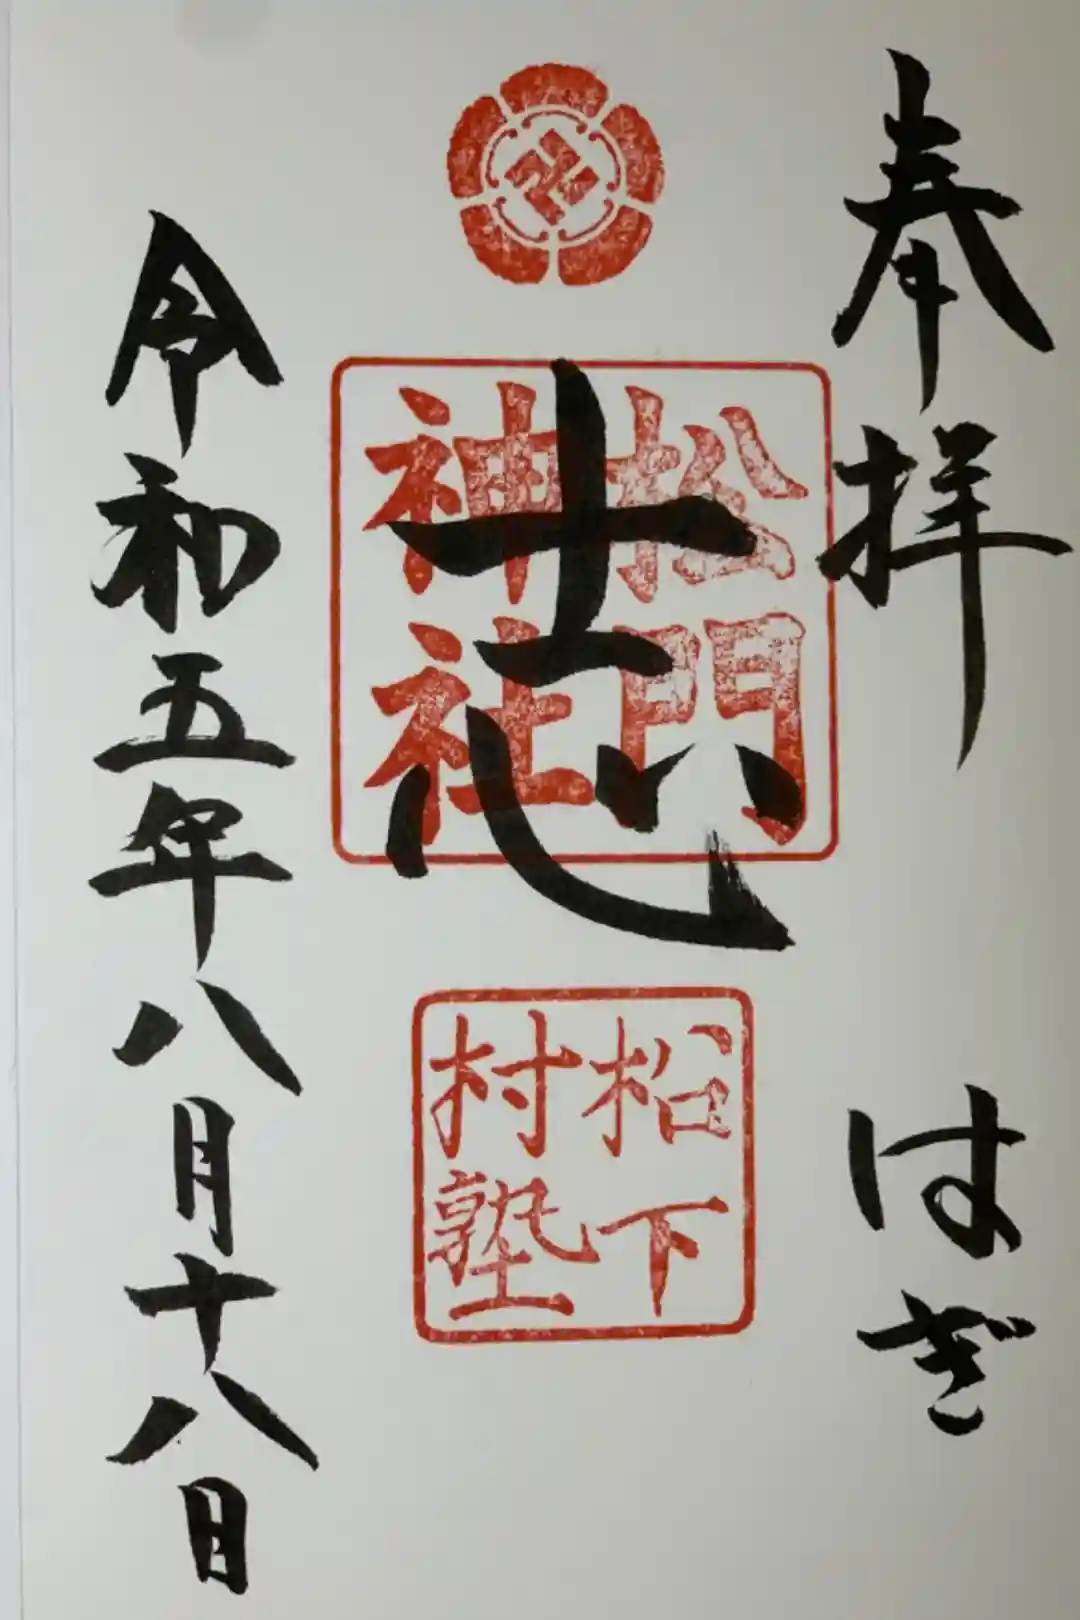 奉拝　はぎ
志
松門
神社
松下
村塾
令和五年八月十八日